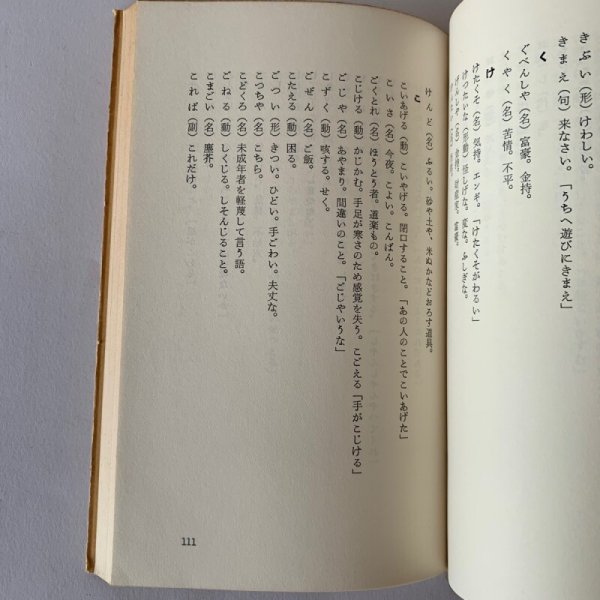 きぶい（形）けわしい。
きまえ（句）来なさい。「うちへ遊びにきまえ」
く
ぐべんしや（名）富豪。金持。
くやく（名）苦情。不平。
け
けたくそ（名）気持。エンギ。「けたくそがわるい」
けつたいな（形動）怪しげな。変な。ふしぎな。
げんしや（名）
けんど（名）ふるい。砂や土や、米ぬかなどおろす道具。
こ
こいあげる（動）こいやげる。閉口すること。「あの人のことでこいあげた」
こいさ（名）今夜。こよい。こんばん。
ごくとれ（名）ほうとう者。道楽もの。
こじける（動）かじかむ。手足が寒さのため感覚を失う。こごえる「手がこじける」
ごじや（名）あやまり。間違いのこと。「ごじやいうな」
こずく（動）咳する。せく。
ごぜん（名）ご飯。
こたえる（動）困る。
ごつい（形）きつい。ひどい。手ごわい。丈夫な。
こつちや（名）こちら。
こどくろ（名）未成年者を軽蔑して言う語。
ごねる（動）しくじる。しそんじること。
こまごい（名）塵芥。
これば（副）これだけ。
111